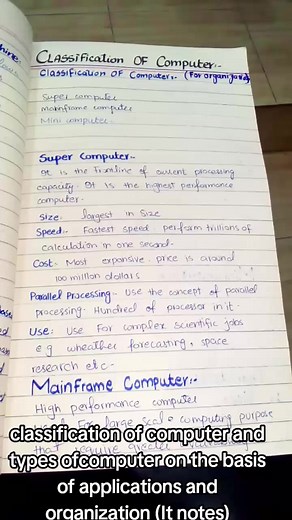 Classification Of Computer:-
Classification Of Computer:- (For organizations)
Super computer
Mainframe computer
Mini computer
Super Computer:-
It is the Frontline of current processing
capacity. It is the highest performance
computer.
Size: largest in Size
Speed:- Fastest speed perform trillions of
calculation in one second.
Cost: Most expensive. price is around
100 million dollars
Parallel Processing:- Use the concept of parallel
processing. Hundred of processor in it.
Use: Use For complex Scientific jobs
e.g wheather forecasting, space
research etc-
Mainframe Computer:-
High performance computer
For large scale computing purpose
that require greater
classification of computer and
types ofcomputer on the basis
of applications and
organization (It notes)